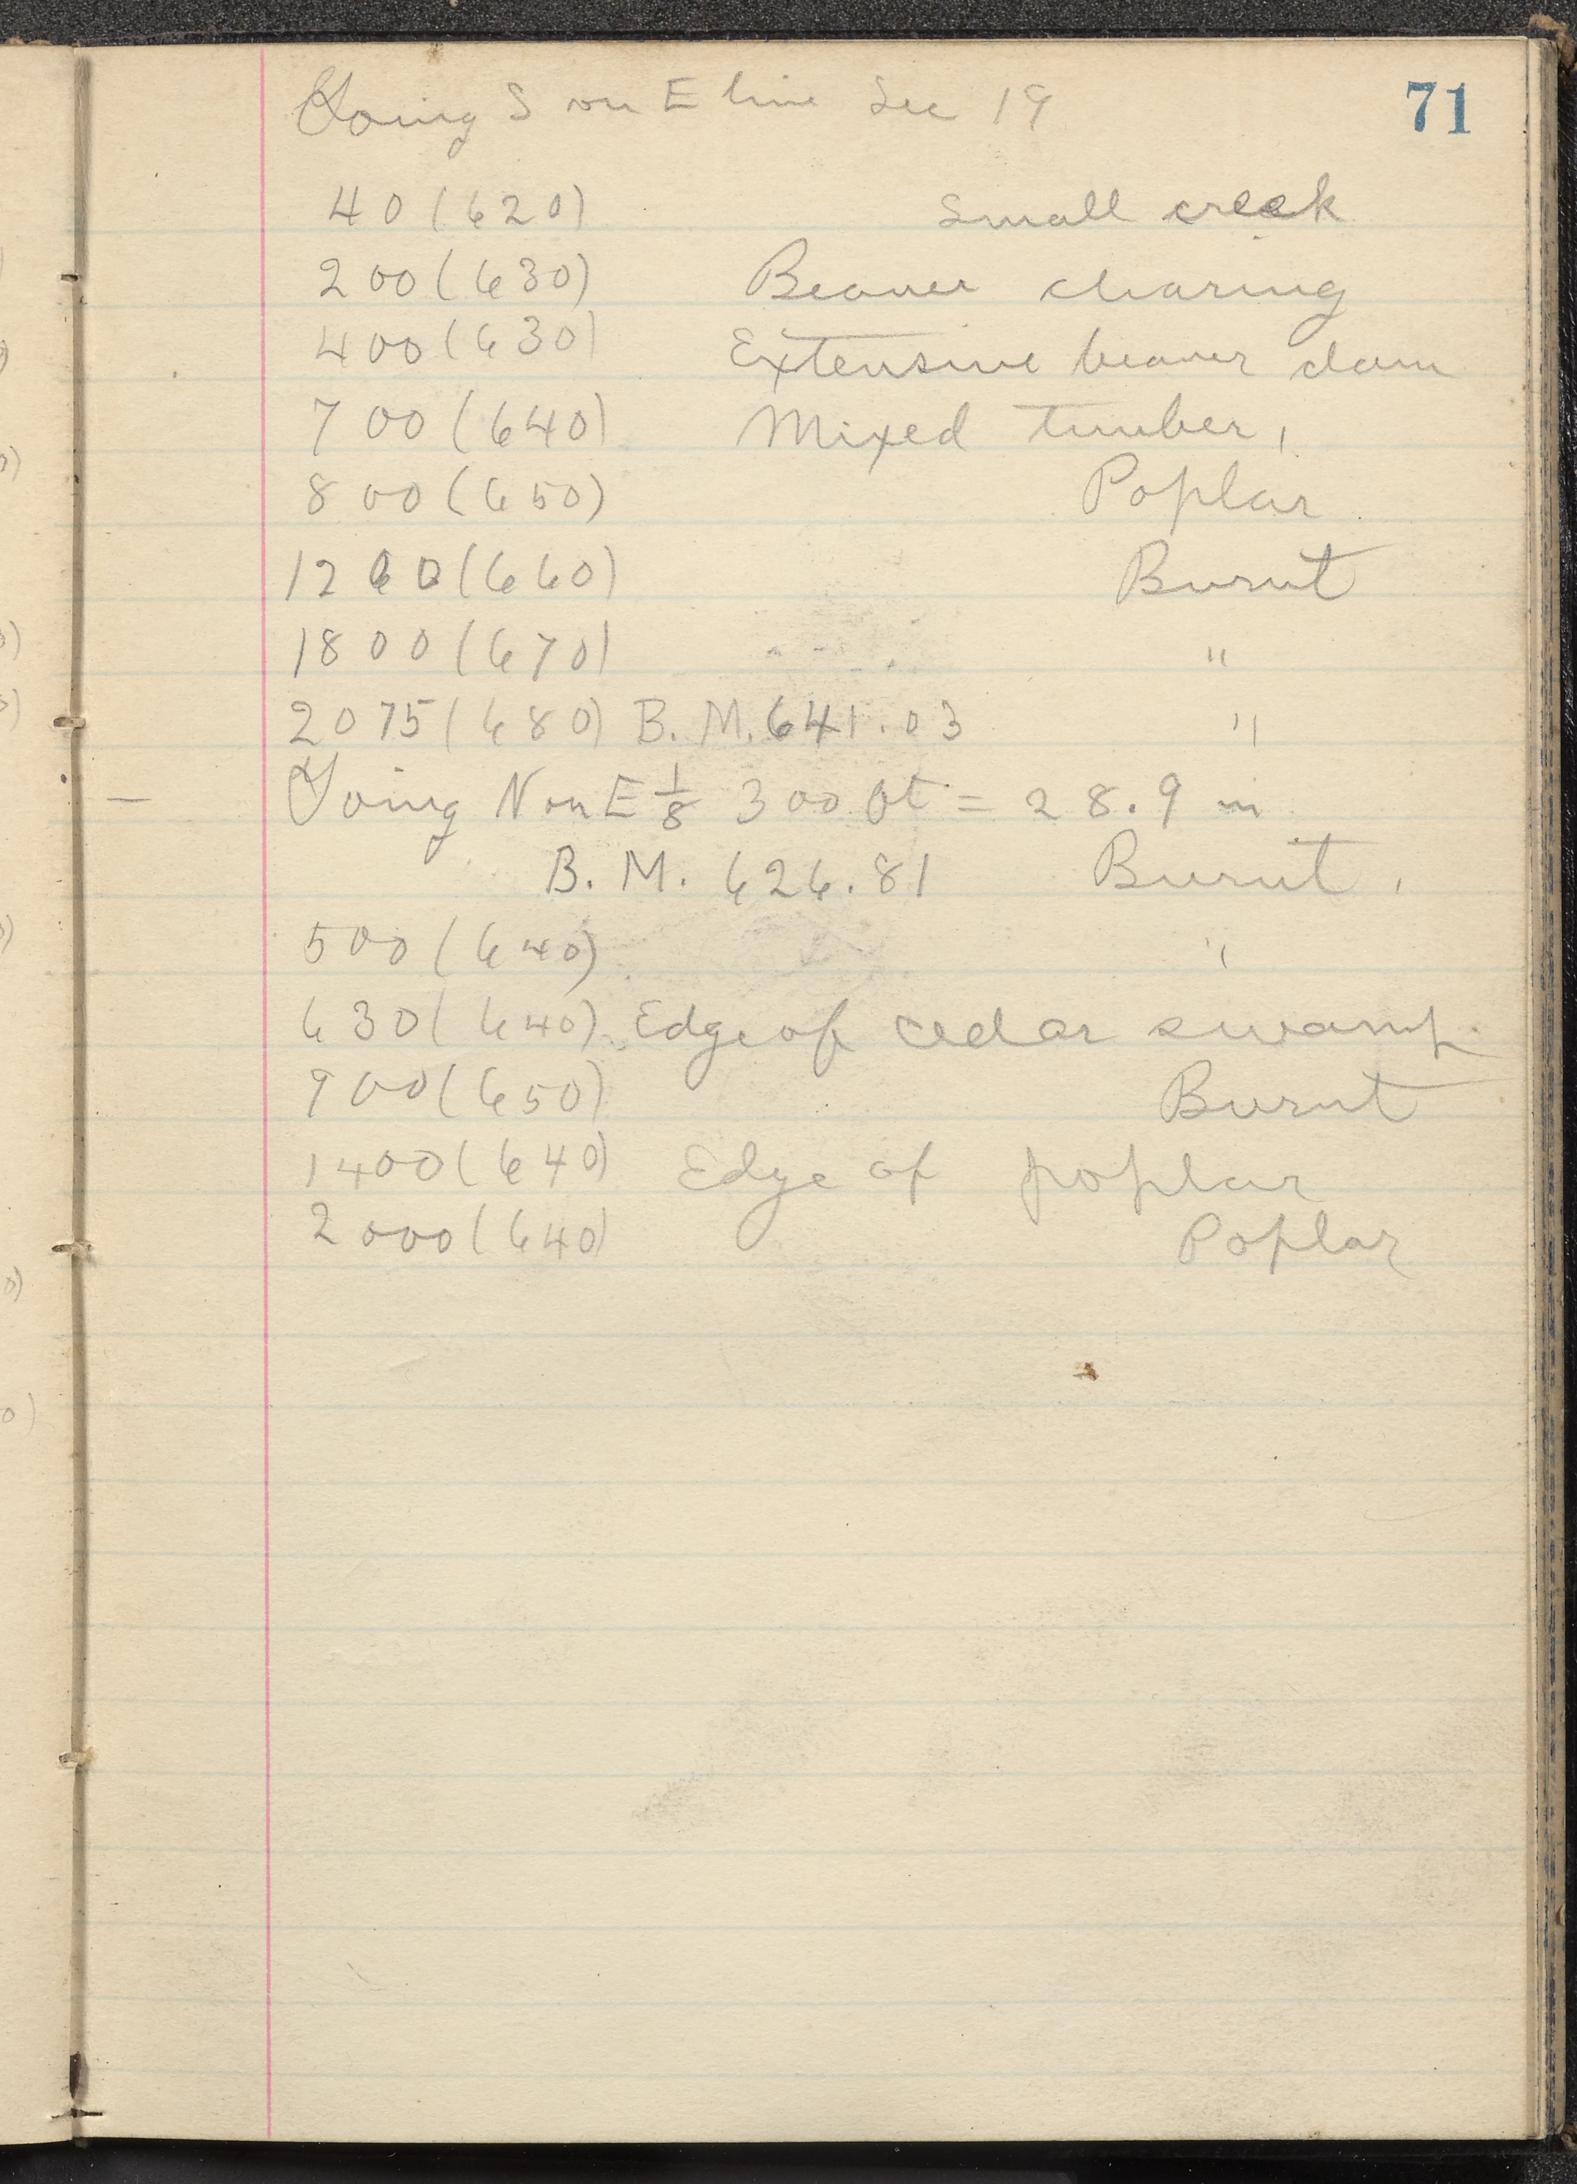 71
Going S on E line Sec 19
40 (620) Small creek
200 (630) Beaver clearing
400 (630) Extensive beaver dam
700 (640) Mixed timber,
800 (650) Poplar
1200 (660) Burnt
1800 (670) "
2075 (680) B. M. 641.03 "
— Going N on E 1/8 300 ft = 28.9 m
B. M. 626.81 Burnt.
500 (640) "
630 (640) Edge of cedar swamp.
900 (650) Burnt
1400 (640) Edge of poplar
2000 (640) Poplar